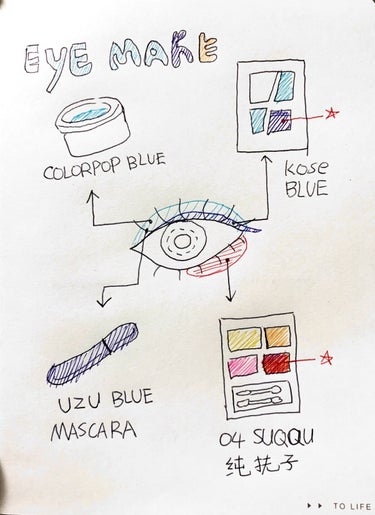 EYE MAKE
COLORPOP BLUE
KOSE
BLUE
UZU BLUE
MASCARA
04 SUQQU
纯扶子
TO LIFE